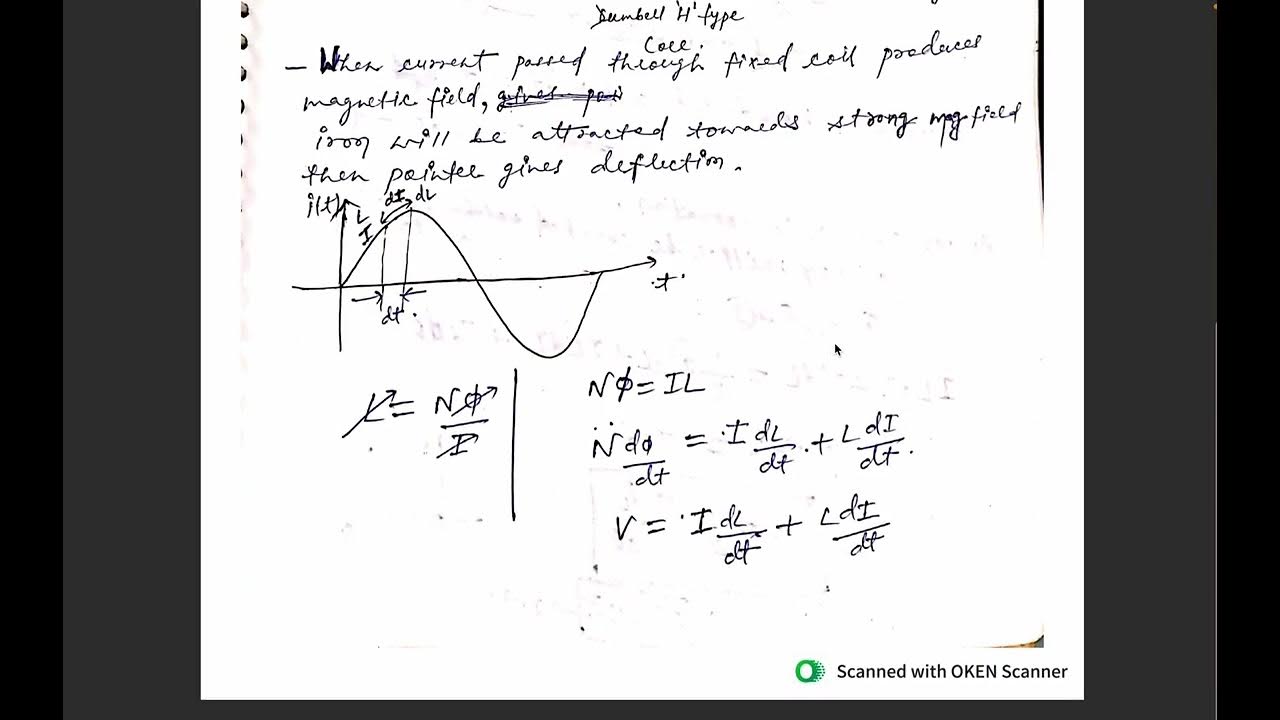 Dumbell 'H' type
Core.
– When current passed through fixed coil produces
magnetic field,
iron will be attracted towards strong mag field
then pointer gives deflection.
i(t) L I dI dL
t
dt.
L = Nφ/I
Nφ = IL
N dφ/dt = I dL/dt + L dI/dt.
V = I dL/dt + L dI/dt
Scanned with OKEN Scanner